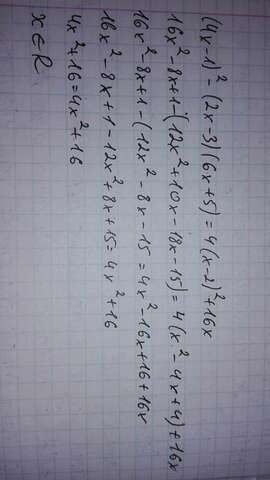 (4x-1)² - (2x-3)(6x+5) = 4(x-2)² + 16x
16x² - 8x + 1 - (12x² + 10x - 18x - 15) = 4(x² - 4x + 4) + 16x
16x² - 8x + 1 - (12x² - 8x - 15) = 4x² - 16x + 16 + 16x
16x² - 8x + 1 - 12x² + 8x + 15 = 4x² + 16
4x² + 16 = 4x² + 16
x ∈ R